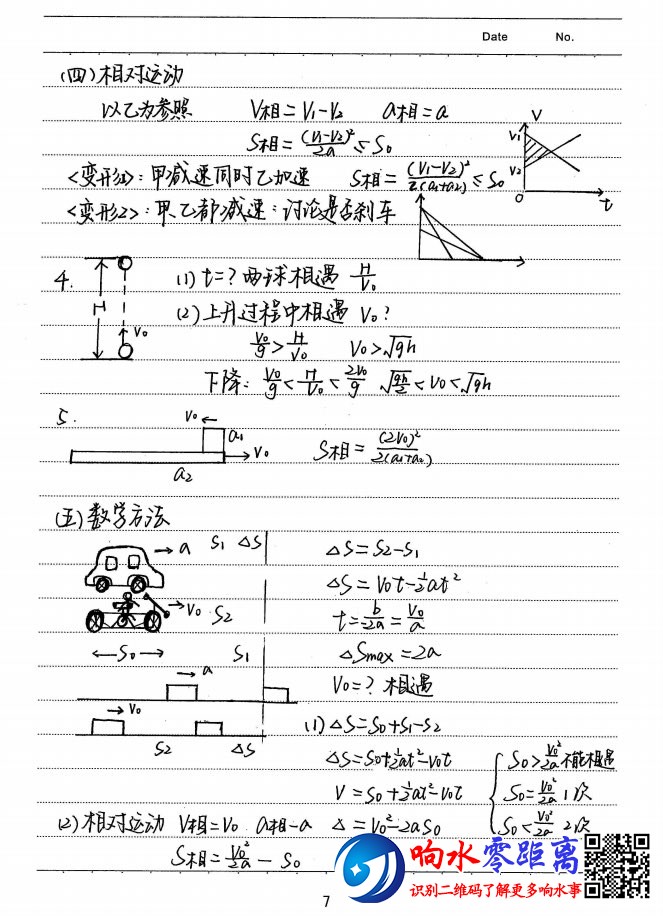 Date No.
(四)相对运动
以乙为参照 V相=V₁-V₂ a相=a
S相=(V₁-V₂)²/2a ≤ S₀
V V₁ V₂ 0 t
<变形1>:甲减速同时乙加速 S相=(V₁-V₂)²/2(a₁+a₂) ≤ S₀
<变形2>:甲、乙都减速:讨论是否刹车
4. H V₀ (1) t=? 两球相遇 H/V₀
(2)上升过程中相遇 V₀?
V₀/g > H/V₀ V₀>√gh
下降: V₀/g < H/V₀ < 2V₀/g √(gh/2) < V₀ < √gh
5. V₀ a₁ V₀ a₂ S相=(2V₀)²/2(a₁+a₂)
(五)数学方法
a S₁ △S △S=S₂-S₁
V₀ S₂ △S=V₀t-½at²
t=b/2a=V₀/a
S₀ S₁ △Smax=2a
a V₀=? 相遇
V₀ (1)△S=S₀+S₁-S₂
S₂ △S △S=S₀+½at²-V₀t S₀>V₀²/2a 不能相遇
V=S₀+½at²-V₀t S₀=V₀²/2a 1次
(2)相对运动 V相=V₀ a相-a △=V₀²-2aS₀ S₀<V₀²/2a 2次
S相=V₀²/2a - S₀
响水零距离
识别二维码了解更多响水事
7